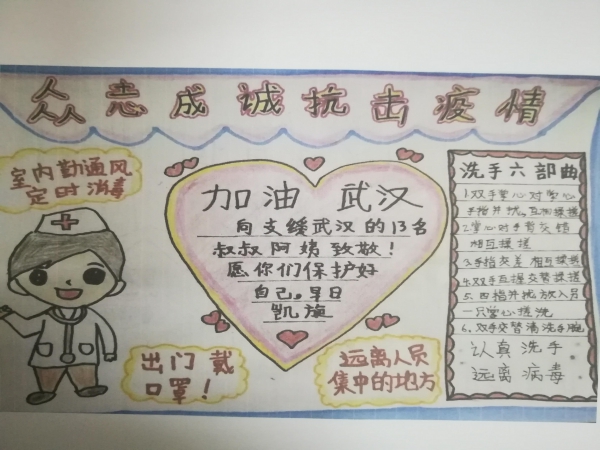 众志成诚抗击疫情
室内勤通风
定时消毒
加油 武汉
向支缓武汉的13名
叔叔阿姨致敬!
愿你们保护好
自己。早日
凯旋
出门戴
口罩!
远离人员
集中的地方
洗手六部曲
1.双手掌心对掌心
手指并拢,互相揉搓
2.掌心对手背交错
相互揉搓
3.手指交差 相互揉搓
4.双手互握交替揉搓
5.四指并拢放入另
一只掌心搓洗
6.双手交替清洗手腕
认真洗手
远离病毒